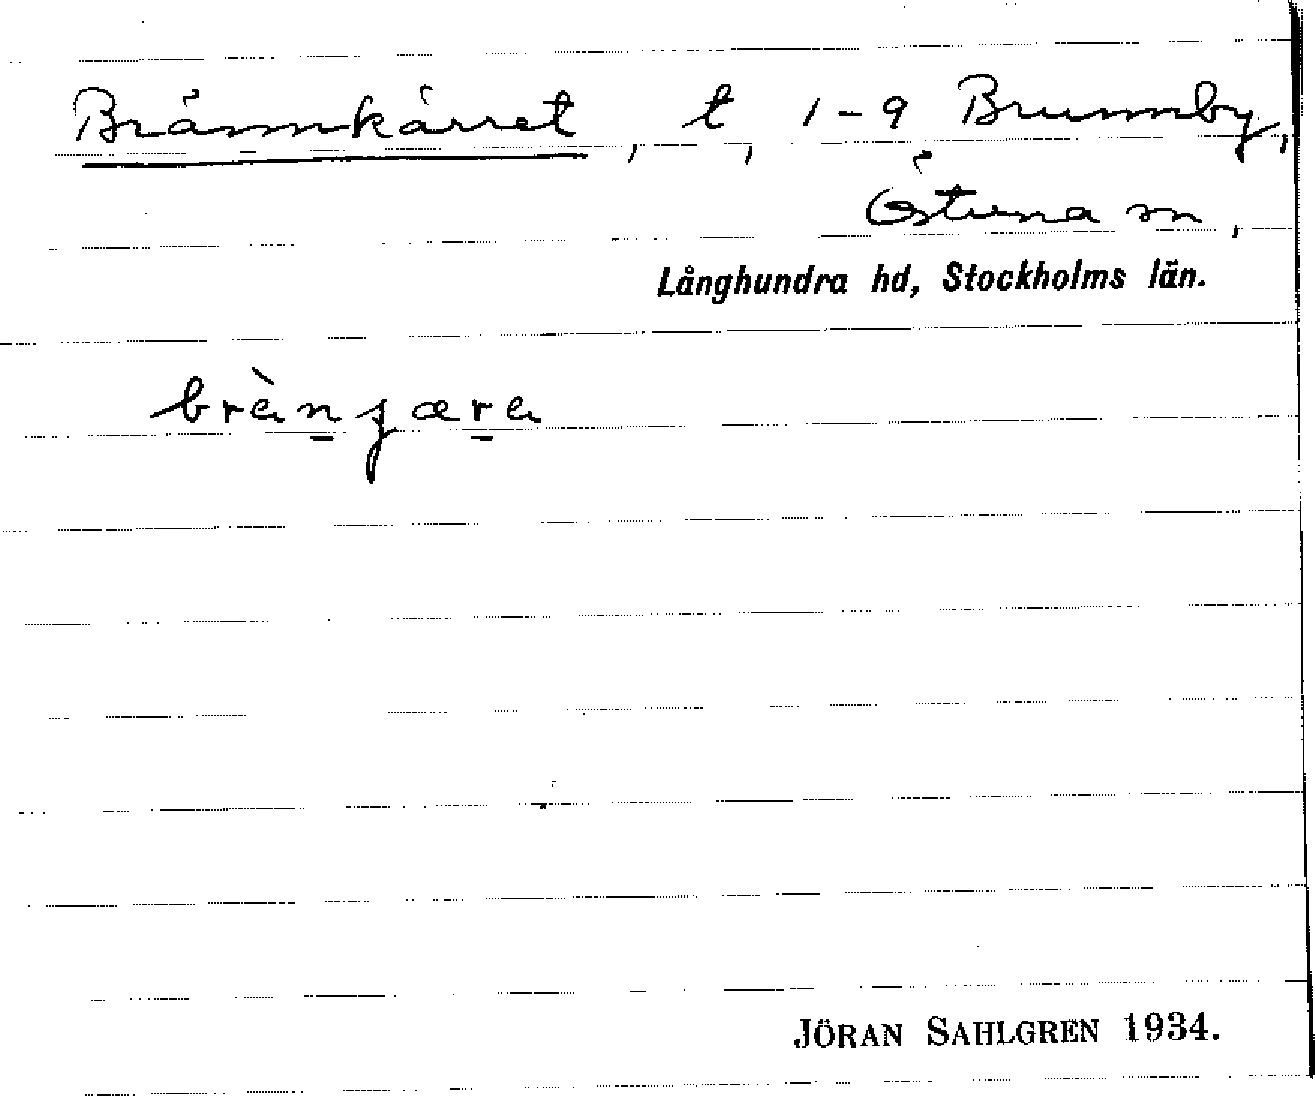 Brännkärret, t, 1-9 Brunnby,
Östuna sn,
Långhundra hd, Stockholms län.
JÖRAN SAHLGREN 1934.